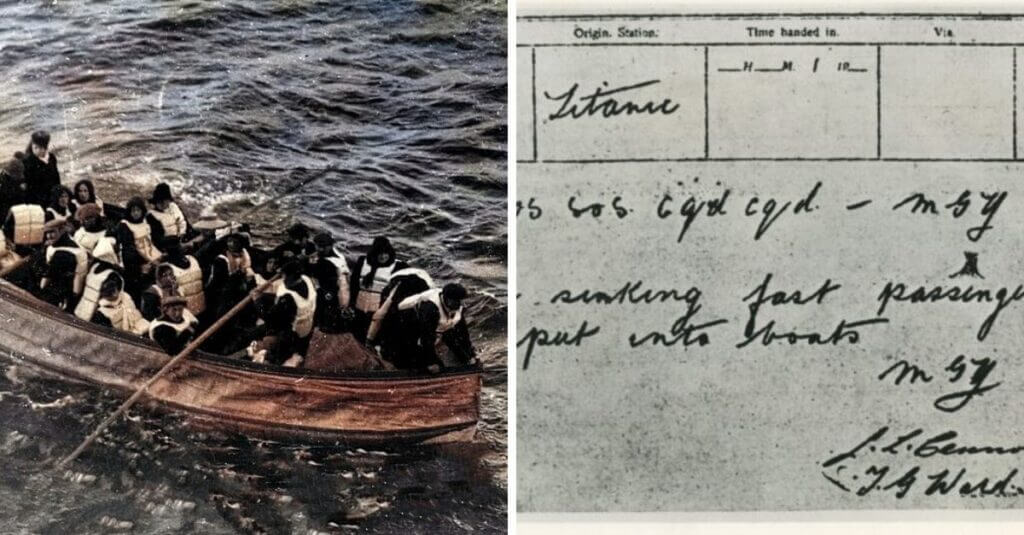 Origin. Station. Time handed in. Via
H. M. 19
Titanic
os sos. cqd cqd. — MGY
sinking fast passenge
put into boats
MGY
T G Ward.